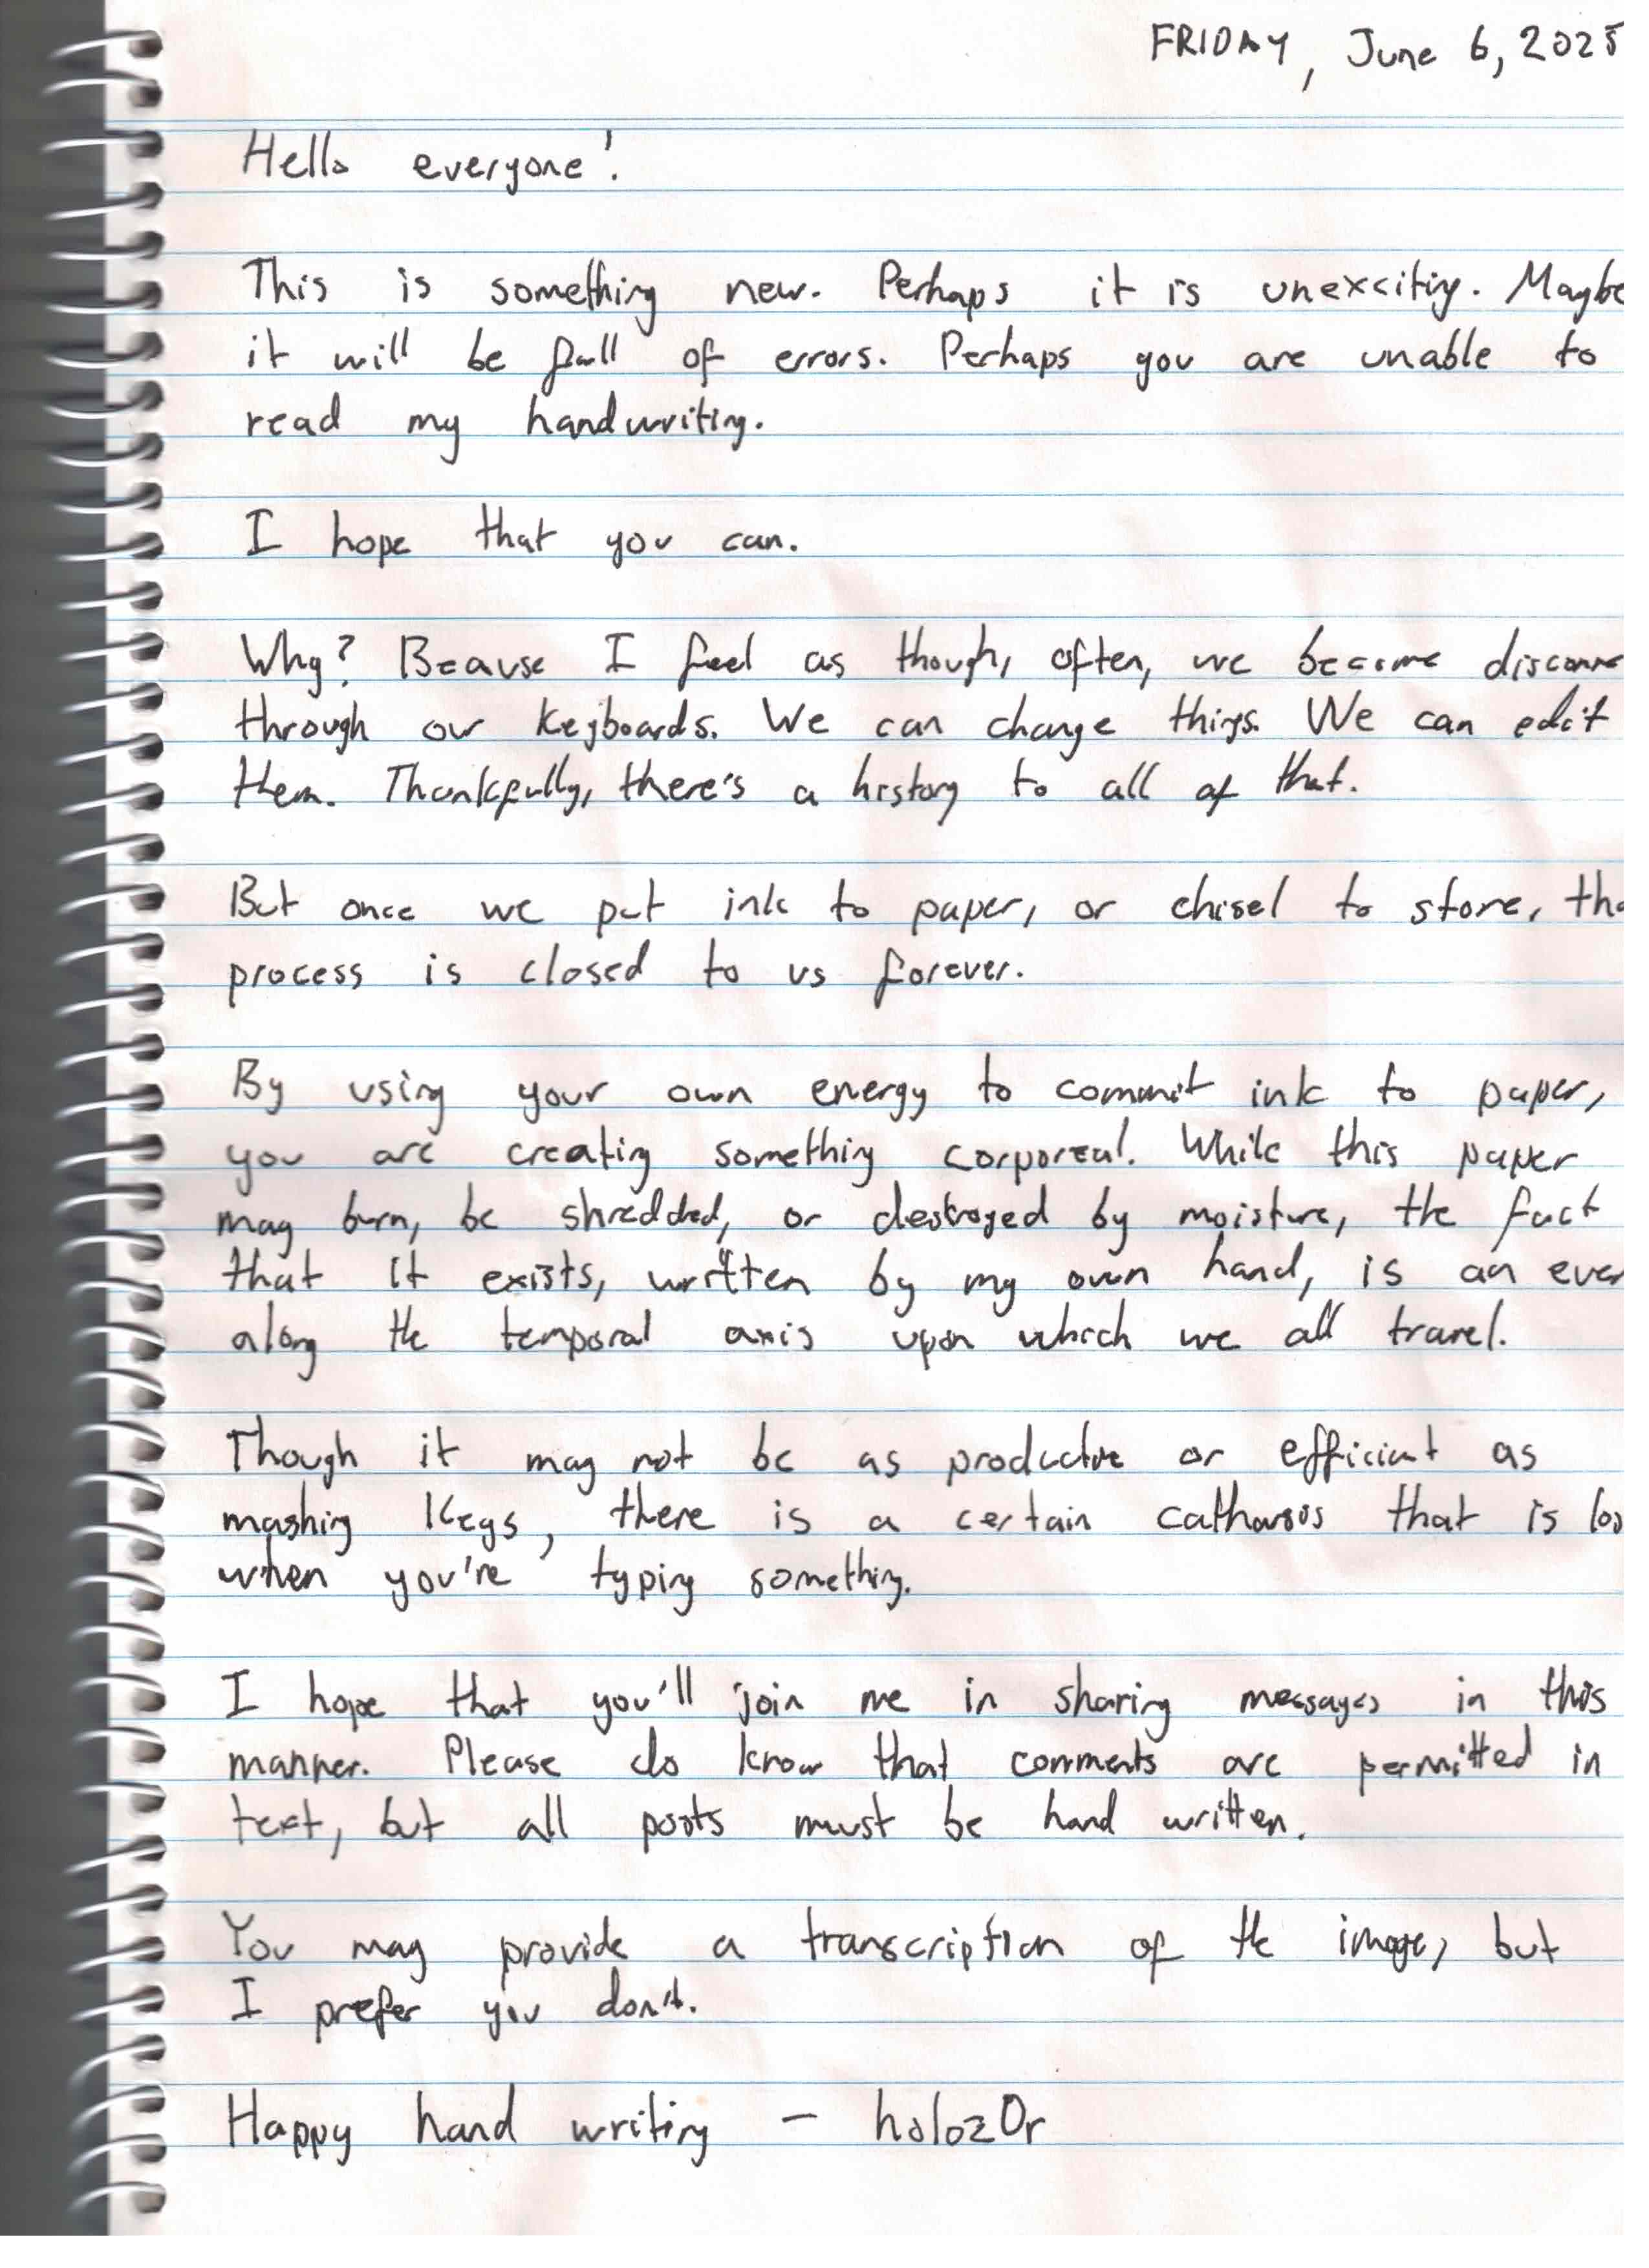 FRIDAY, June 6, 2025
Hello everyone!
This is something new. Perhaps it is unexciting. Maybe
it will be full of errors. Perhaps you are unable to
read my handwriting.
I hope that you can.
Why? Beause I feel as though, often, we become disconne
through our keyboards. We can change things. We can edit
them. Thankfully, there's a history to all of that.
But once we put ink to paper, or chisel to stone, tha
process is closed to us forever.
By using your own energy to commit ink to paper,
you are creating something corporeal. While this paper
may burn, be shredded, or destroyed by moisture, the fact
that it exists, written by my own hand, is an even
along the temporal axis upon which we all travel.
Though it may not be as productive or efficient as
mashing keys, there is a certain catharsis that is los
when you're typing something.
I hope that you'll join me in sharing messages in this
manner. Please do know that comments are permitted in
text, but all posts must be hand written.
You may provide a transcription of the image, but
I prefer you don't.
Happy hand writing - holoz0r